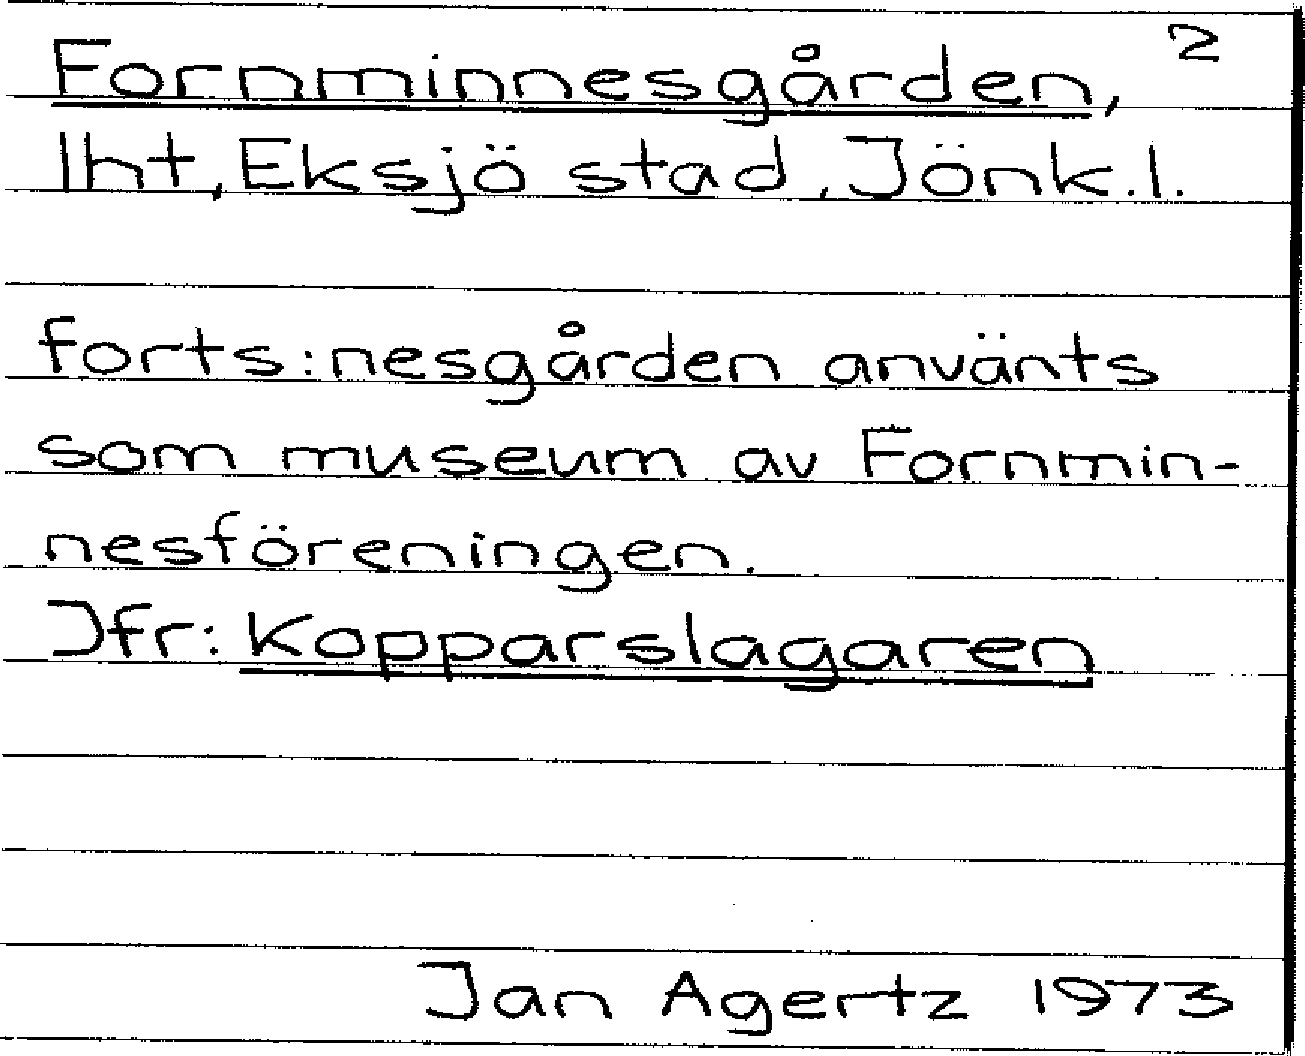 Fornminnesgården, 2
lht, Eksjö stad, Jönk.l.
forts: nesgården använts
som museum av Fornmin-
nesföreningen.
Jfr: Kopparslagaren
Jan Agertz 1973